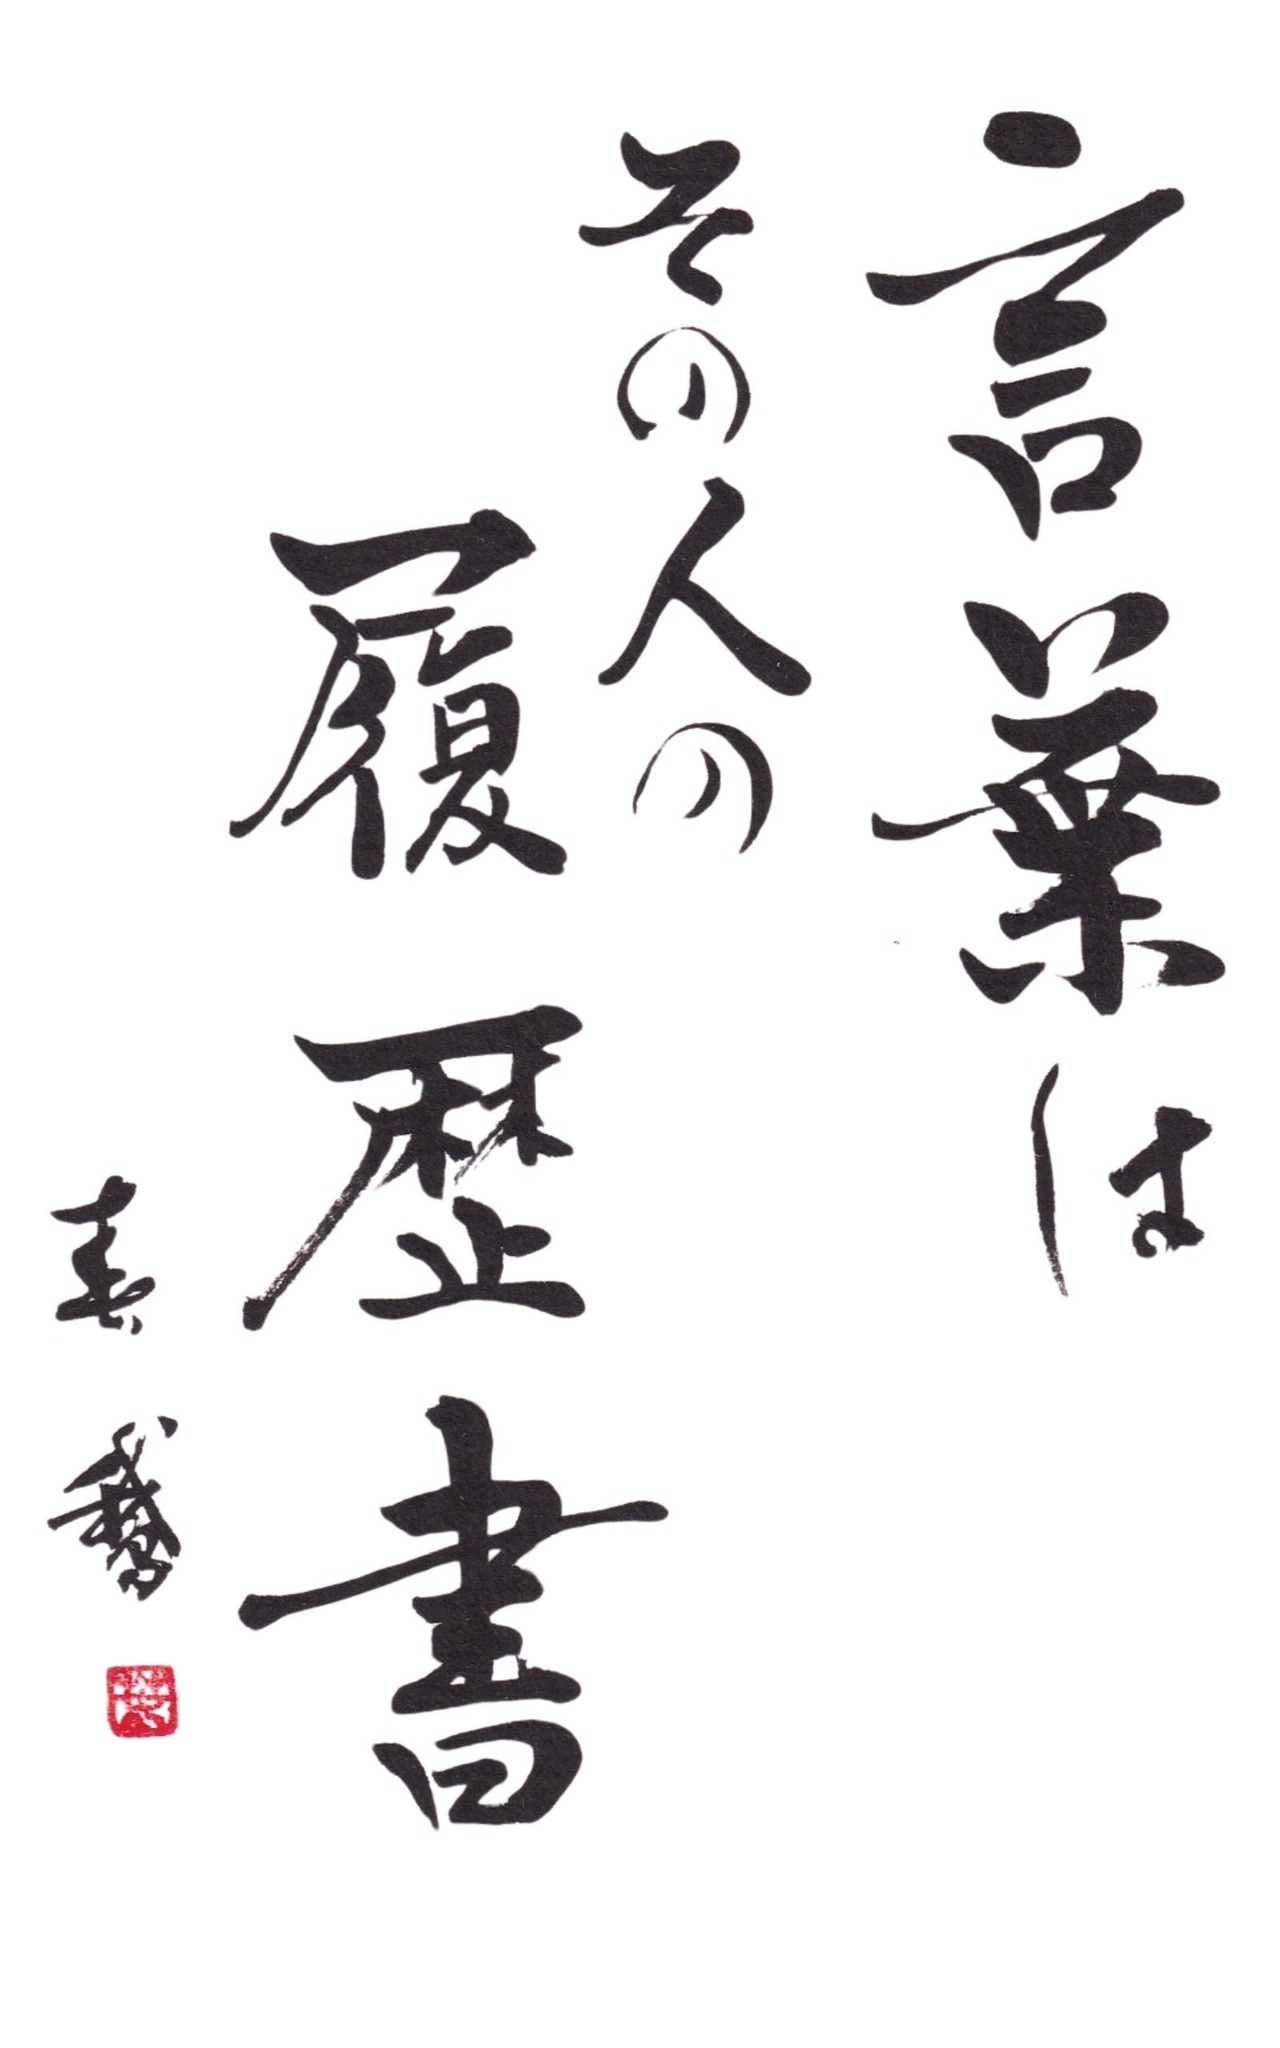 言葉は
その人の
履歴書
春鵞